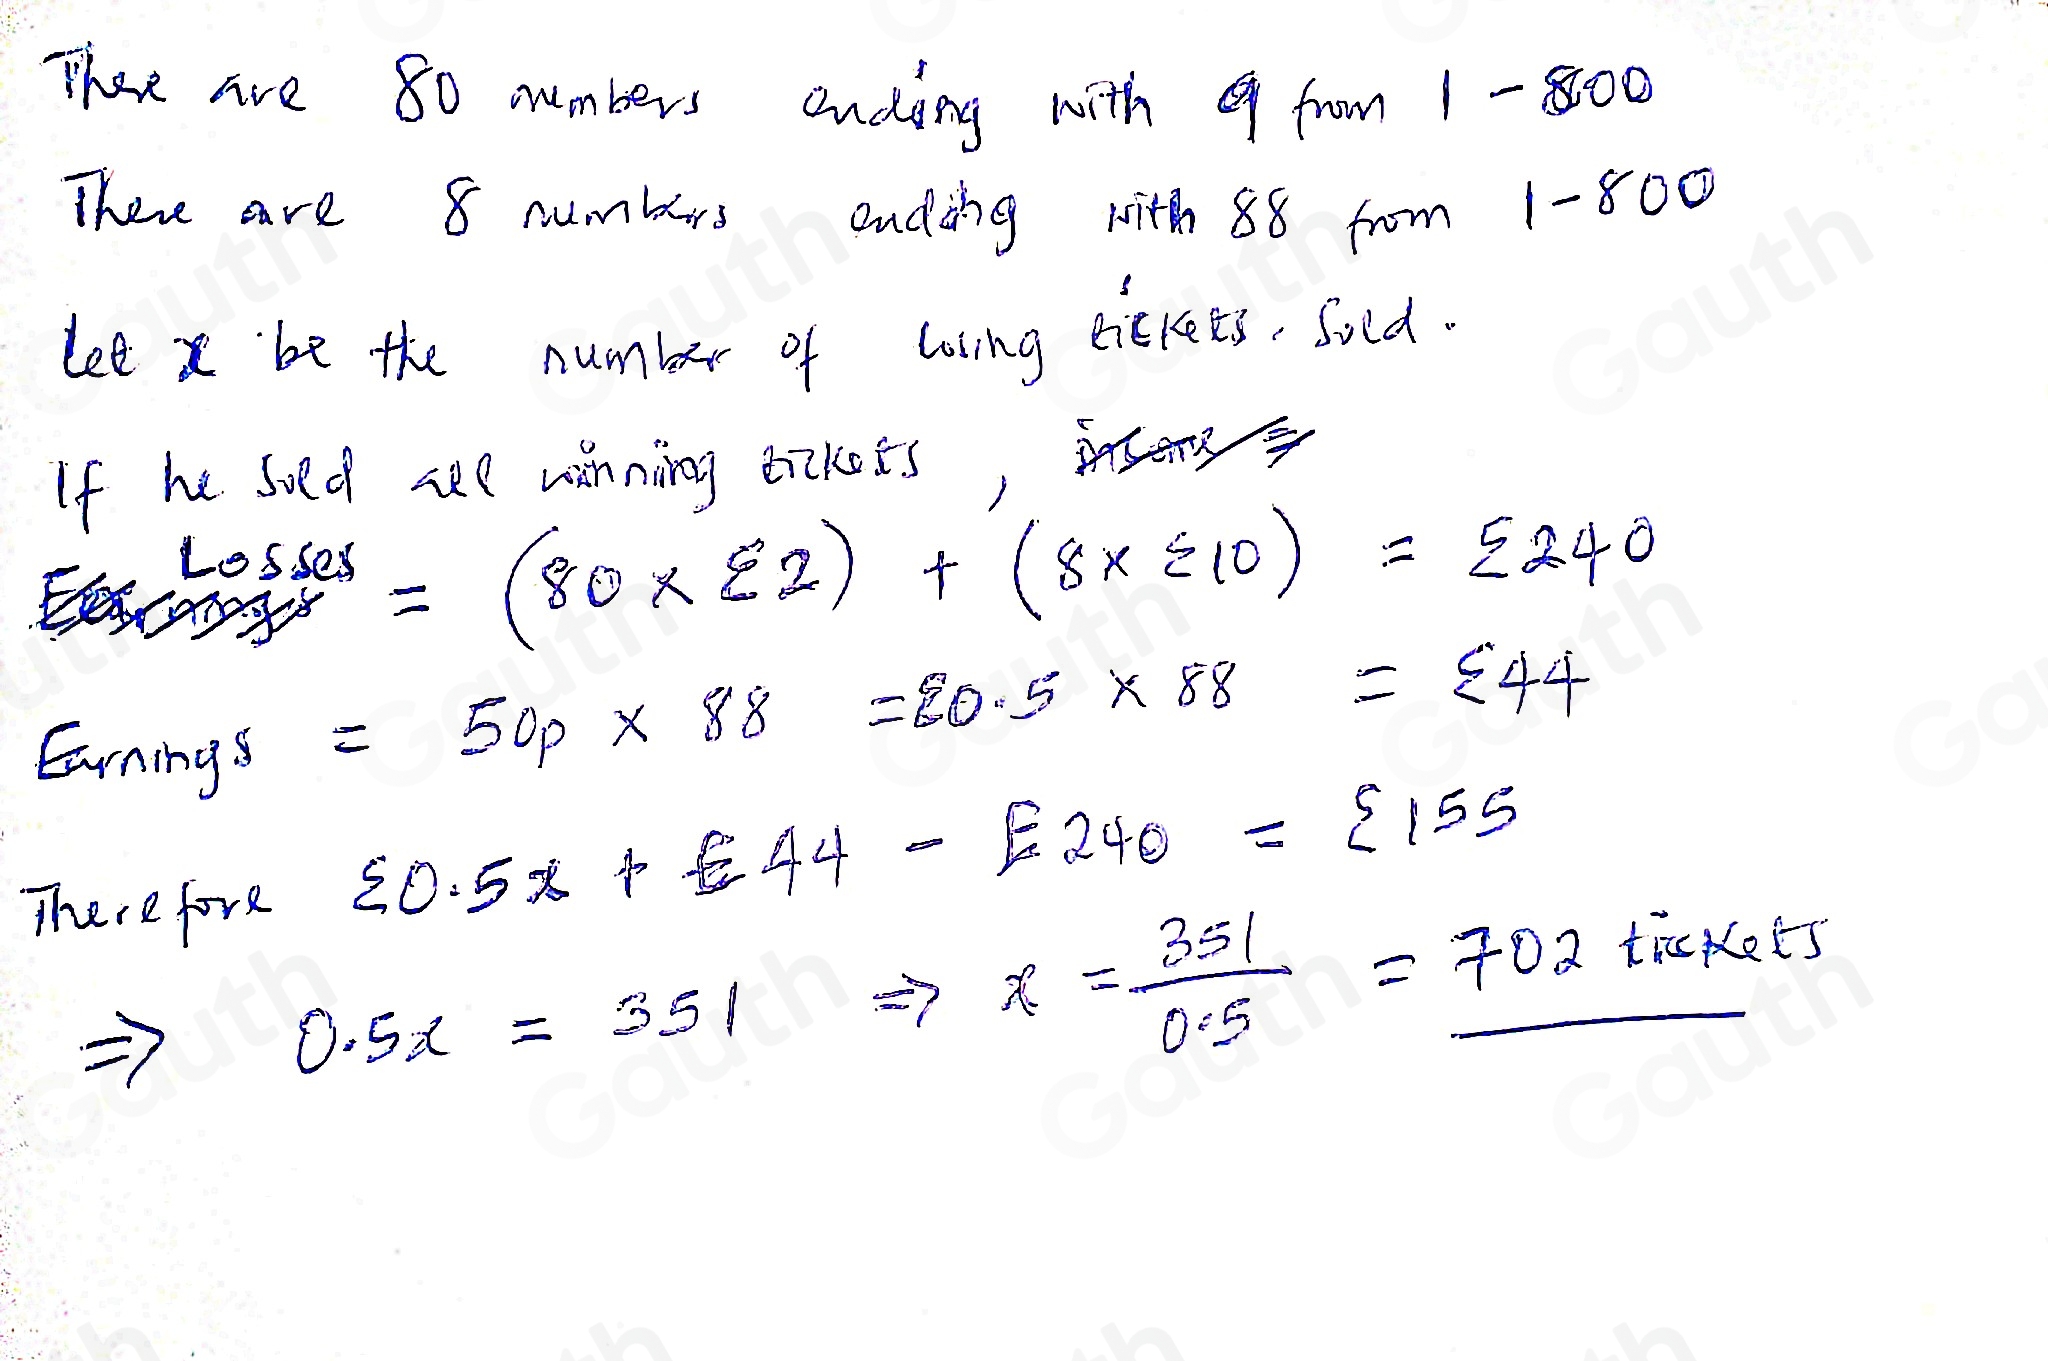 There are 80 numbers ending with 9 from 1 - 800
There are 8 numbers ending with 88 from 1 - 800
let x be the number of losing tickets sold.
If he sold all winning tickets,
Losses = (80 x £2) + (8 x £10) = £240
Earnings = 50p x 88 = £0.5 x 88 = £44
Therefore £0.5x + £44 - £240 = £155
⇒ 0.5x = 351 ⇒ x = 351/0.5 = 702 tickets
Gauth